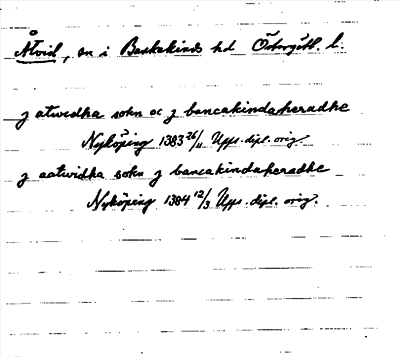 Åtvid, sn i Bankekinds hd Östergötl. l.
j atwidha sokn oc j bancakindaheradhe
Nyköping 1383 26/11 Upps. dipl. orig.
j aatwidha sokn j bancakindaheradhe
Nyköping 1384 12/3 Upps. dipl. orig.